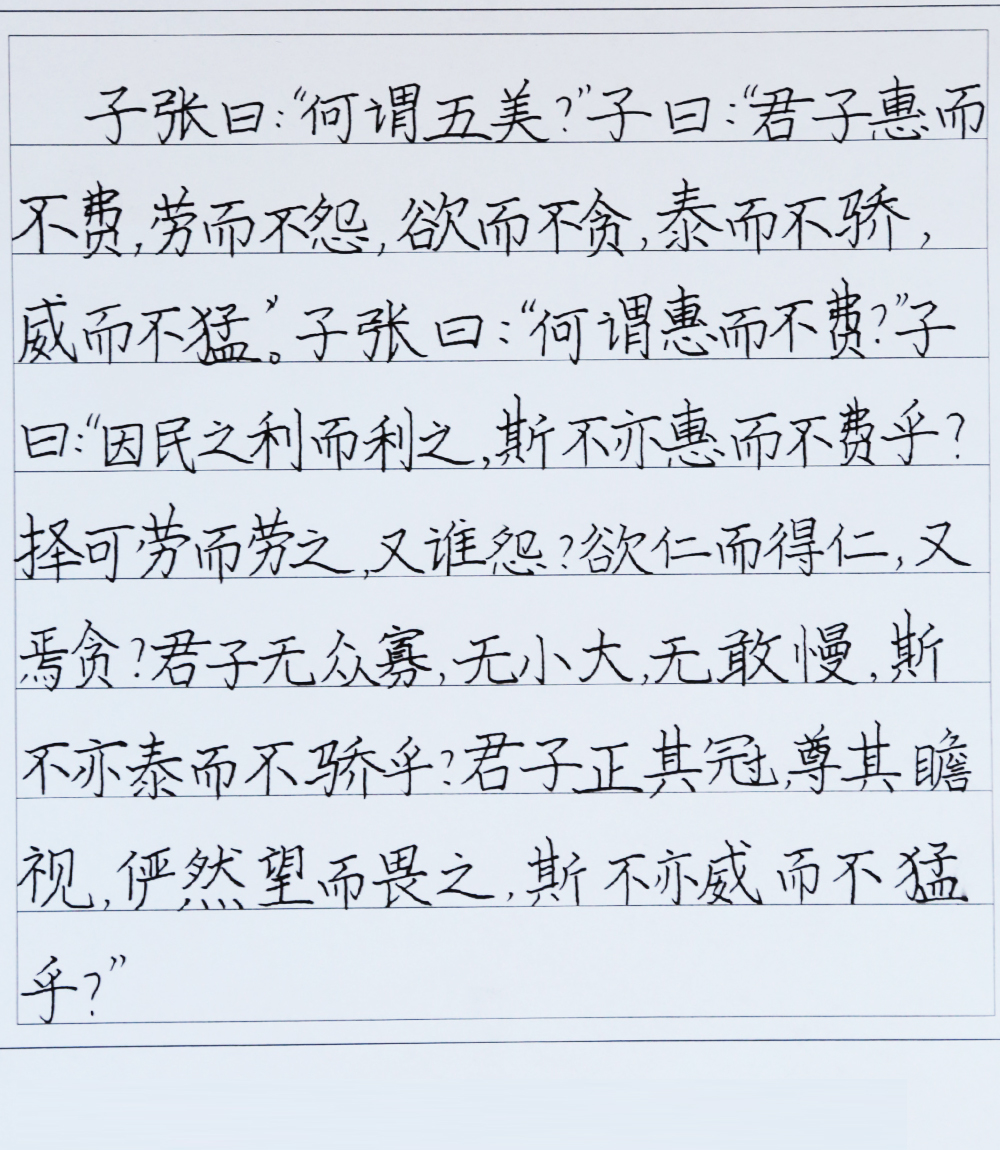 子张曰：“何谓五美？”子曰：“君子惠而
不费，劳而不怨，欲而不贪，泰而不骄，
威而不猛。”子张曰：“何谓惠而不费？”子
曰：“因民之利而利之，斯不亦惠而不费乎？
择可劳而劳之，又谁怨？欲仁而得仁，又
焉贪？君子无众寡，无小大，无敢慢，斯
不亦泰而不骄乎？君子正其冠，尊其瞻
视，俨然望而畏之，斯不亦威而不猛
乎？”